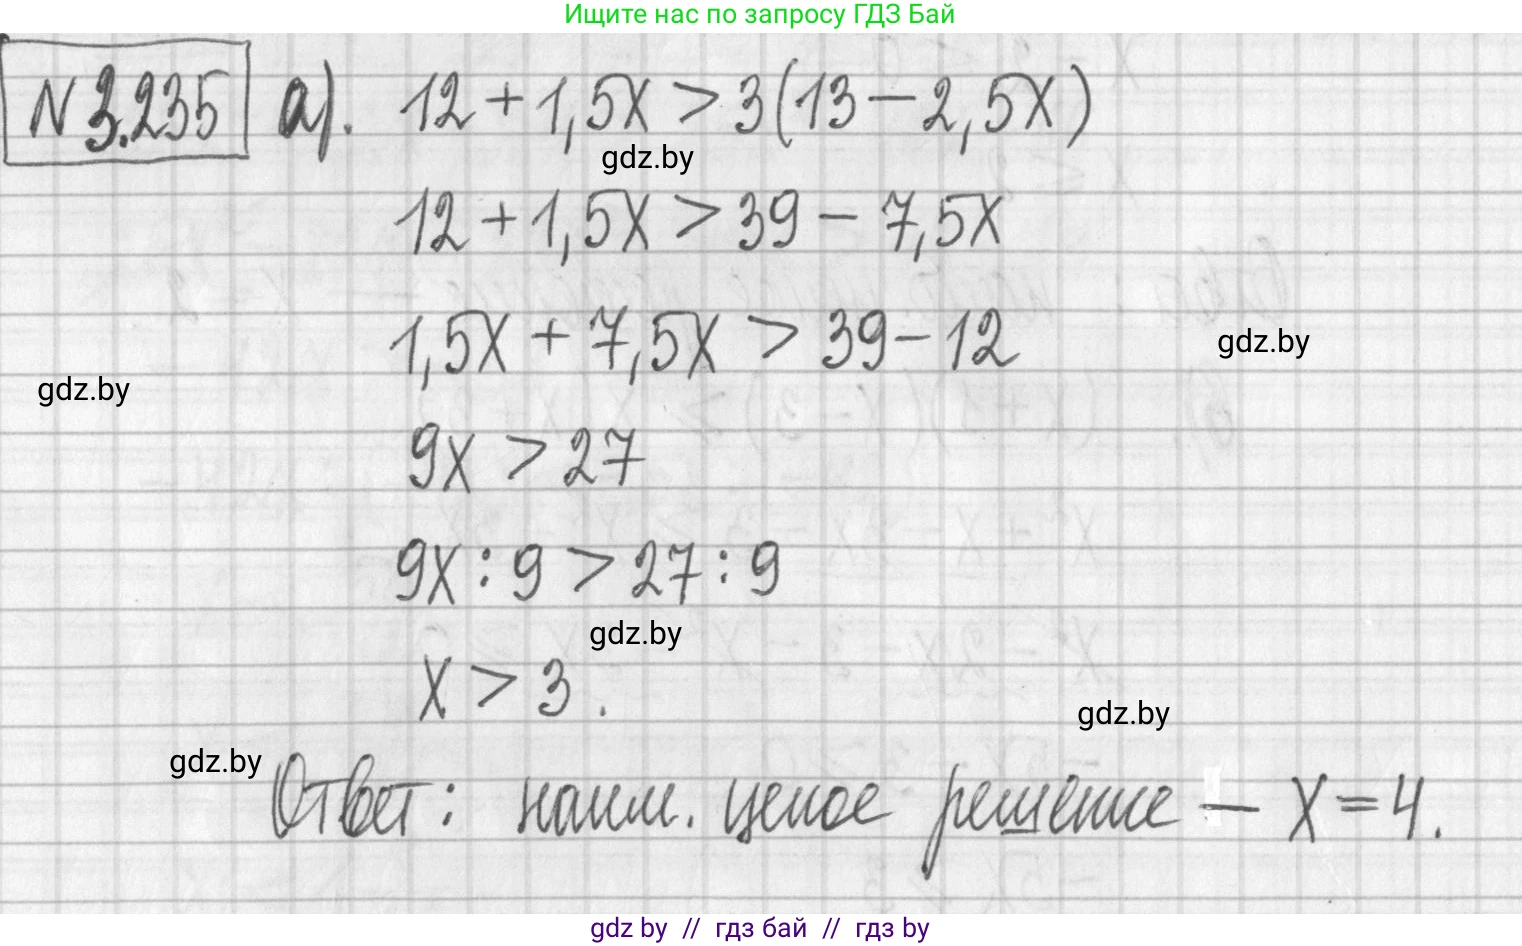 Ищите нас по запросу ГДЗ Бай
N 3.235 а). 12 + 1,5х > 3(13 - 2,5х)
gdz.by
12 + 1,5х > 39 - 7,5х
1,5х + 7,5х > 39 - 12
gdz.by
gdz.by
9х > 27
9х : 9 > 27 : 9
gdz.by
х > 3.
gdz.by
gdz.by
Ответ: наим. целое решение - х = 4.
gdz by // гдз бай // гдз by